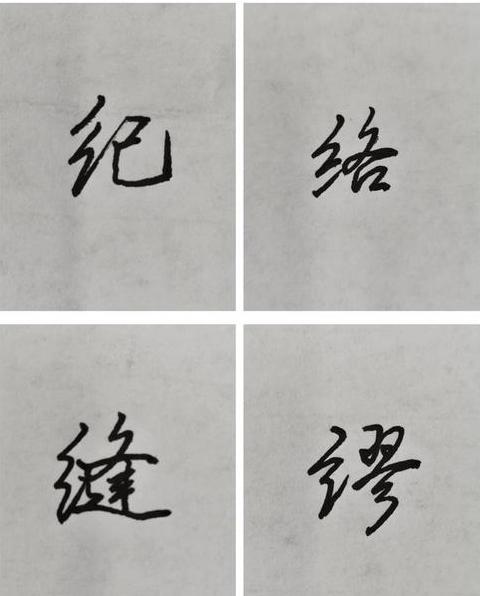 纪 络
缝 缪